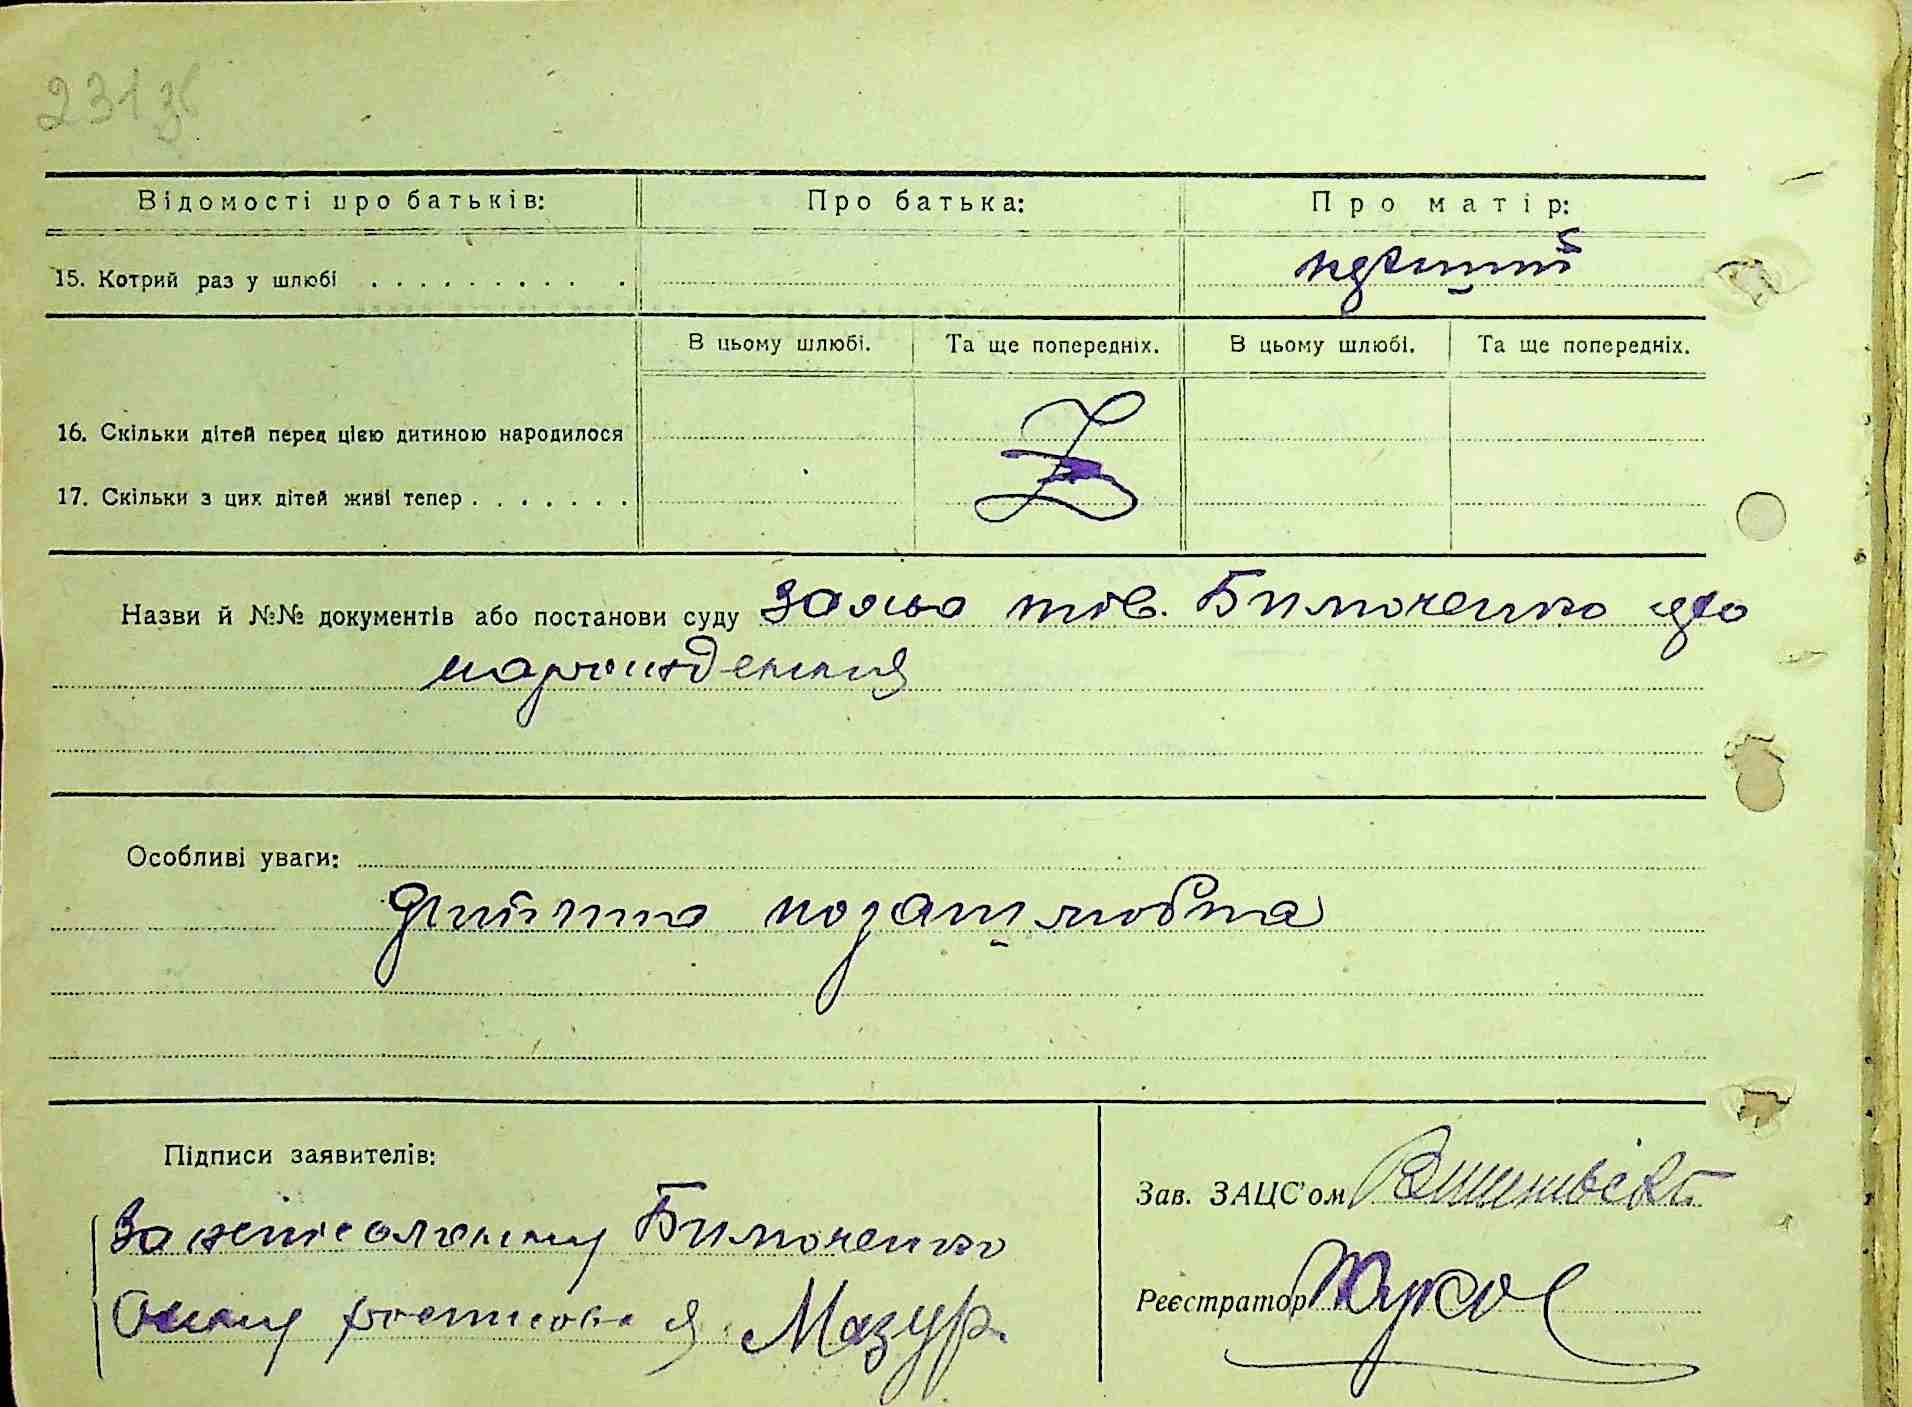 231 зв
Відомості про батьків: Про батька: Про матір:
15. Котрий раз у шлюбі . . . . . . . . . .
В цьому шлюбі. Та ще попередніх. В цьому шлюбі. Та ще попередніх.
16. Скільки дітей перед цією дитиною народилося
17. Скільки з цих дітей живі тепер . . . . . . .
Z
Назви й №№ документів або постанови суду заява тов. Бимоченко про
народження
Особливі уваги:
дитина позашлюбна
Підписи заявителів:
За неписьменну Бимоченко
росписався Мазур
Зав. ЗАЦС'ом
Реєстратор